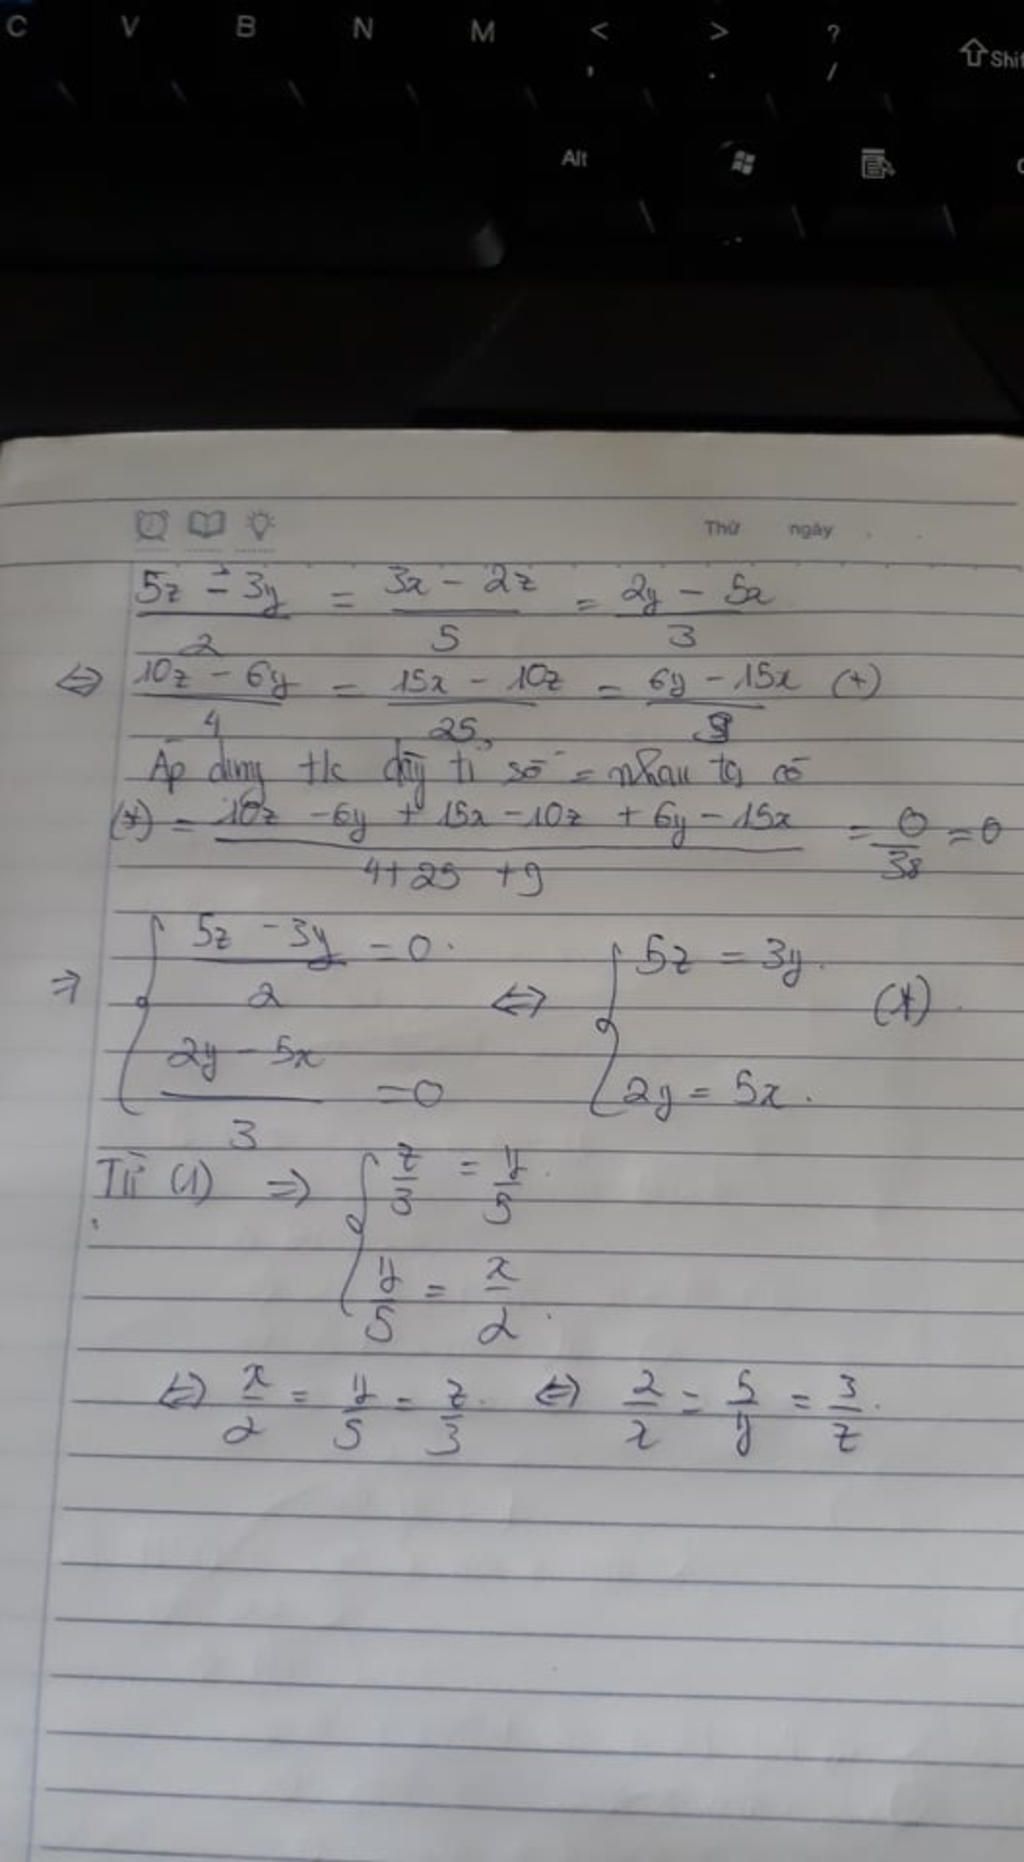 C V B N M < , > . ? / Shif
Alt
Thứ ngày
5z - 3y / 2 = 3x - 2z / 5 = 2y - 5x / 3
⇔ 10z - 6y / 4 = 15x - 10z / 25 = 6y - 15x / 9 (*)
Áp dụng t/c dãy tỉ số = nhau ta có
(*) = 10z - 6y + 15x - 10z + 6y - 15x / 4 + 25 + 9 = 0 / 38 = 0
⇒ { 5z - 3y / 2 = 0. ⇔ { 5z = 3y. (*).
2y - 5x / 3 = 0 2y = 5x.
Từ (1) ⇒ { z/3 = y/5.
y/5 = x/2.
⇔ x/2 = y/5 = z/3. ⇔ 2/x = 5/y = 3/z.